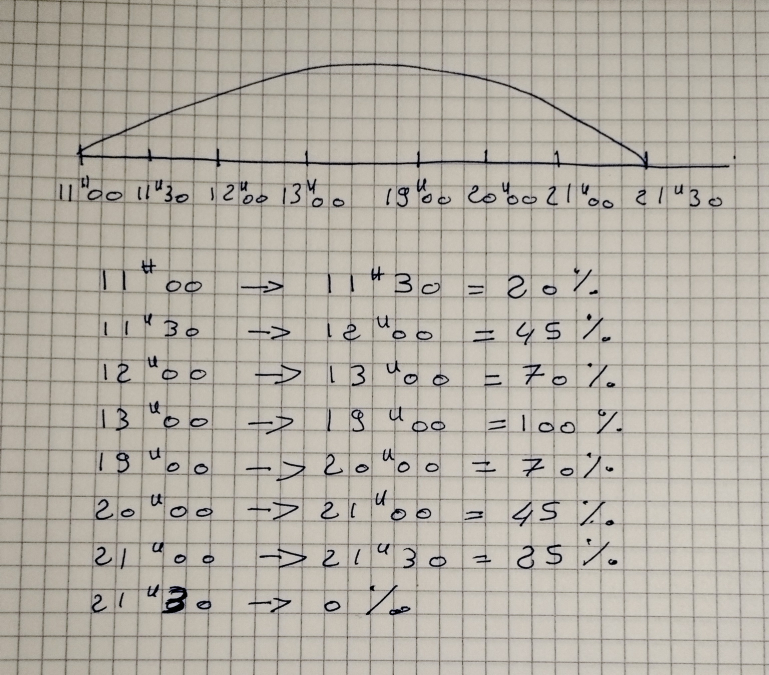 11u00 11u30 12u00 13u00 19u00 20u00 21u00 21u30
11u00 -> 11u30 = 20%
11u30 -> 12u00 = 45%
12u00 -> 13u00 = 70%
13u00 -> 19u00 = 100%
19u00 -> 20u00 = 70%
20u00 -> 21u00 = 45%
21u00 -> 21u30 = 25%
21u30 -> 0%